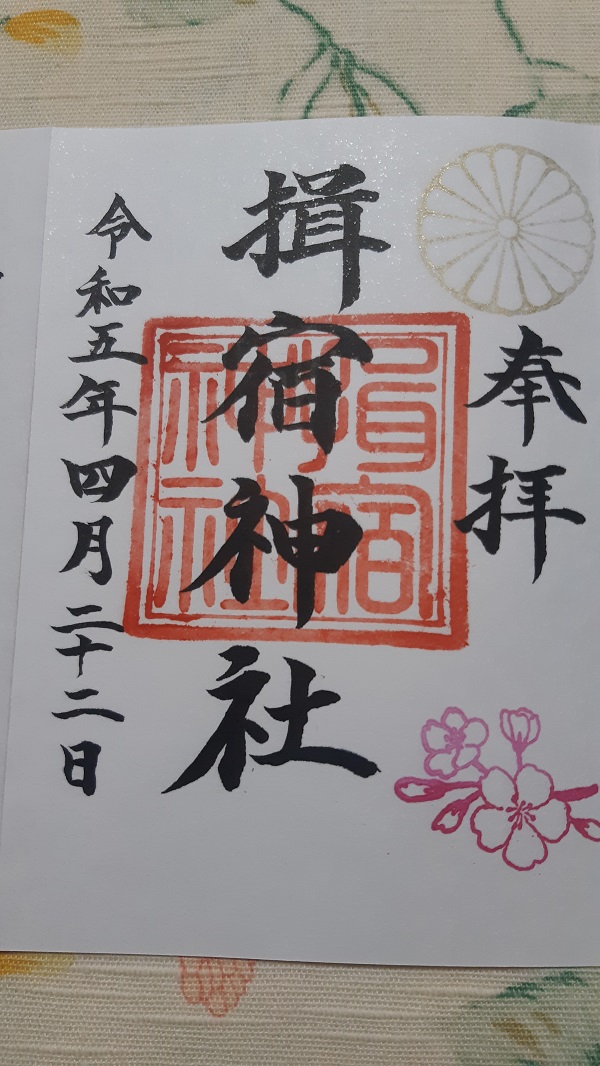 奉拝
揖宿神社
揖宿神社
令和五年四月二十二日